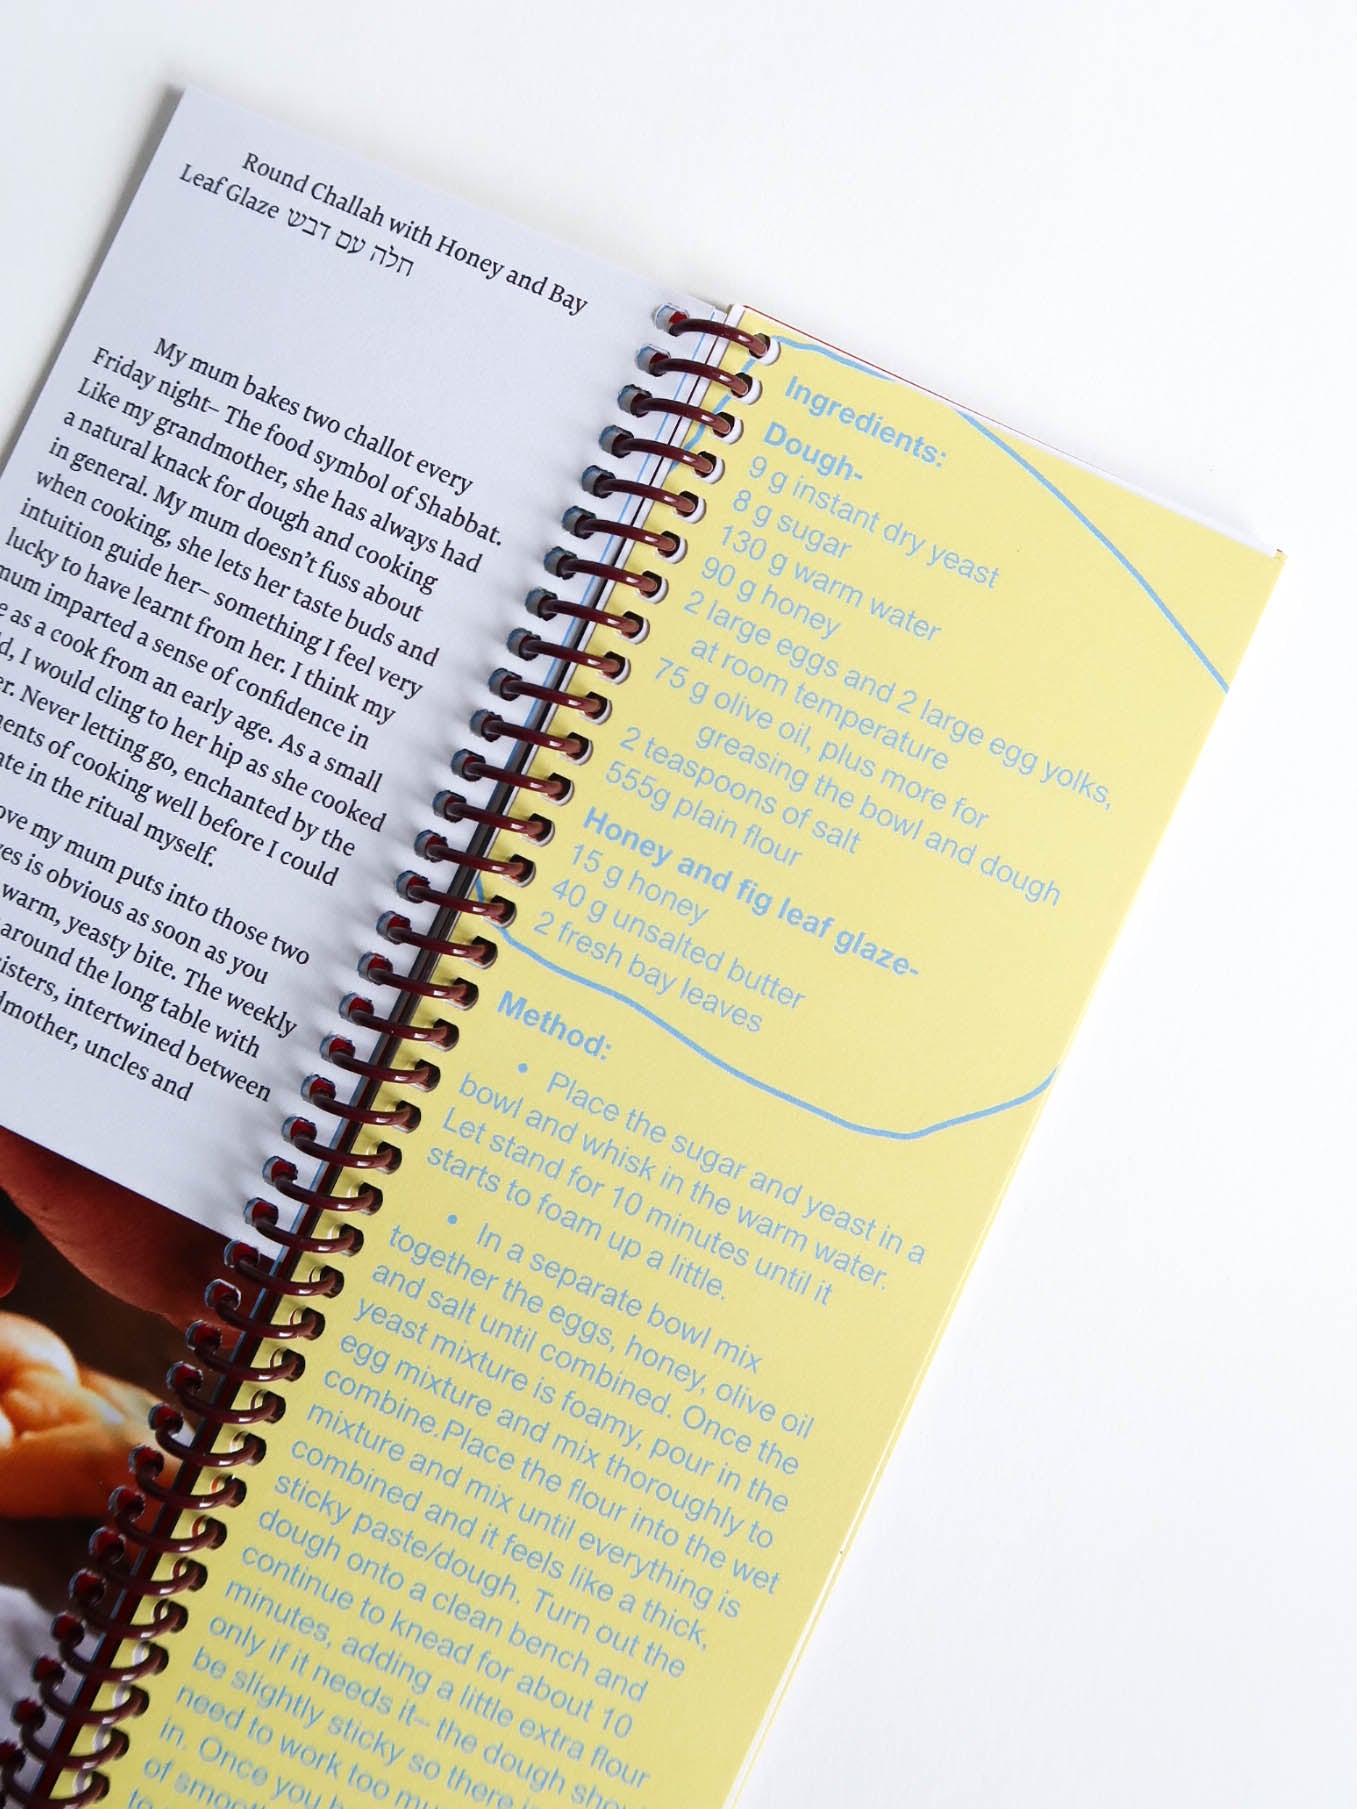 Round Challah with Honey and Bay
Leaf Glaze חלה עם דבש
My mum bakes two challot every
Friday night– The food symbol of Shabbat.
Like my grandmother, she has always had
a natural knack for dough and cooking
in general. My mum doesn't fuss about
when cooking, she lets her taste buds and
intuition guide her– something I feel very
lucky to have learnt from her. I think my
mum imparted a sense of confidence in
as a cook from an early age. As a small
I would cling to her hip as she cooked
Never letting go, enchanted by the
of cooking well before I could
in the ritual myself.
my mum puts into those two
is obvious as soon as you
warm, yeasty bite. The weekly
around the long table with
sisters, intertwined between
uncles and
Ingredients:
Dough-
9 g instant dry yeast
8 g sugar
130 g warm water
90 g honey
2 large eggs and 2 large egg yolks,
at room temperature
75 g olive oil, plus more for
greasing the bowl and dough
2 teaspoons of salt
555g plain flour
Honey and fig leaf glaze-
15 g honey
40 g unsalted butter
2 fresh bay leaves
Method:
• Place the sugar and yeast in a
bowl and whisk in the warm water.
Let stand for 10 minutes until it
starts to foam up a little.
• In a separate bowl mix
together the eggs, honey, olive oil
and salt until combined. Once the
yeast mixture is foamy, pour in the
egg mixture and mix thoroughly to
combine.Place the flour into the wet
mixture and mix until everything is
combined and it feels like a thick,
sticky paste/dough. Turn out the
dough onto a clean bench and
continue to knead for about 10
minutes, adding a little extra flour
only if it needs it– the dough
be slightly sticky so there
need to work too
in. Once you
of
to